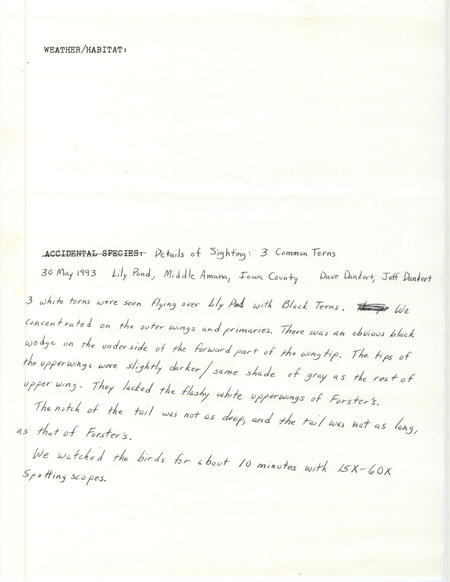 WEATHER/HABITAT:
ACCIDENTAL SPECIES: Details of Sighting: 3 Common Terns
30 May 1993 Lily Pond, Middle Amana, Iowa County Dave Dankert, Jeff Dankert
3 white terns were seen flying over Lily Pod with Black Terns. We
concentrated on the outer wings and primaries. There was an obvious black
wedge on the underside of the forward part of the wingtip. The tips of
the upperwings were slightly darker/same shade of gray as the rest of
upper wing. They lacked the flashy white upperwings of Forster's.
The notch of the tail was not as deep, and the tail was not as long,
as that of Forster's.
We watched the birds for about 10 minutes with 15X-60X
Spotting scopes.